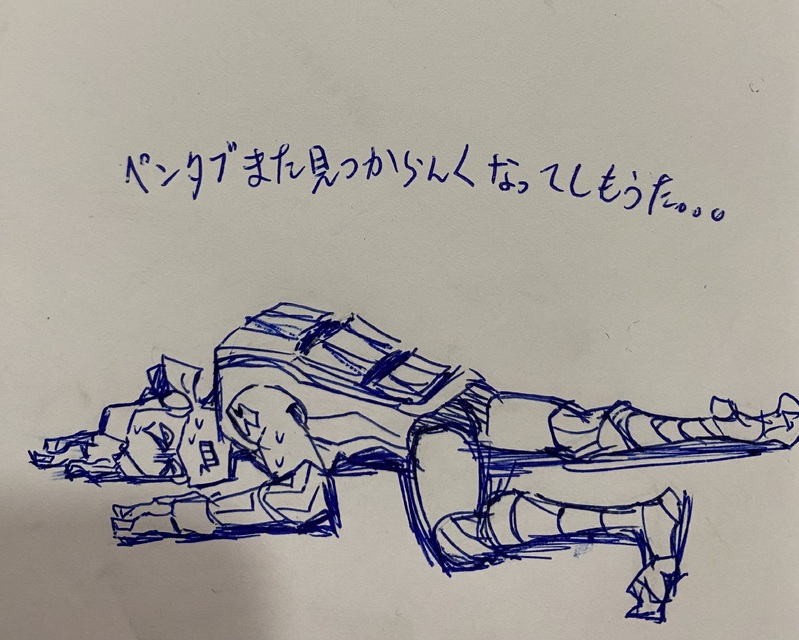 ペンタブまた見つからんくなってしもうた。。。